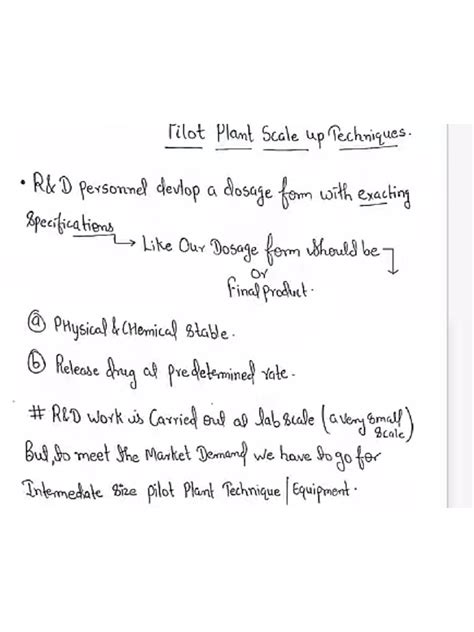 Pilot Plant Scale up Techniques.
• R&D personnel devlop a dosage form with exacting
specifications
→ Like Our Dosage form should be
or
final product.
ⓐ PHysical & CHemical stable.
ⓑ Release drug at predetermined rate.
# R&D work is Carried out at lab scale (a very small scale)
But, to meet the Market Demand we have to go for
Intermediate size pilot Plant Technique / Equipment.